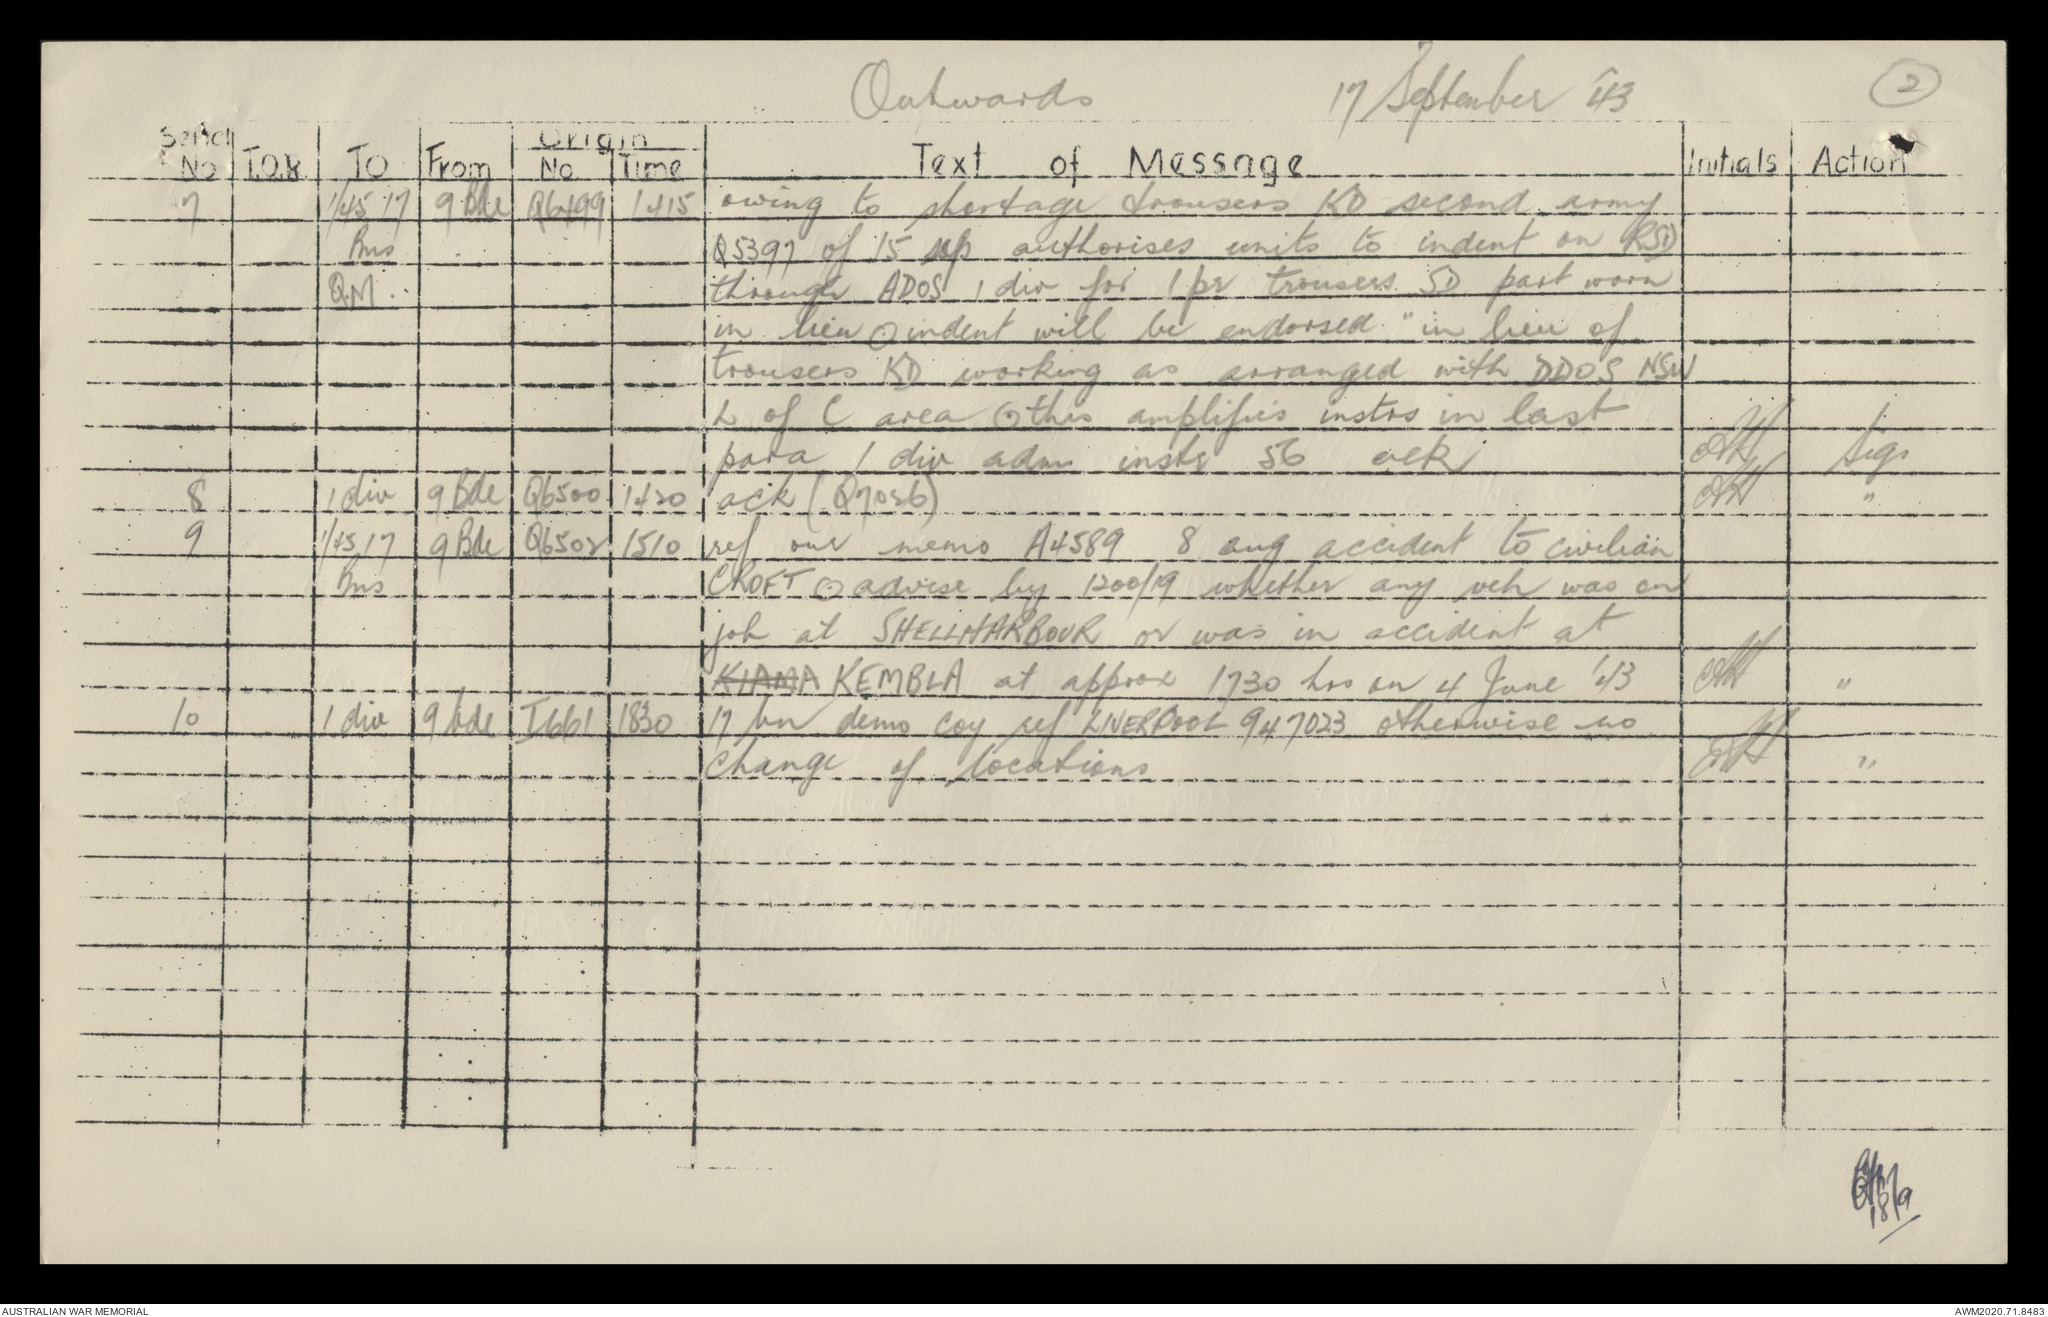 Outwards 17 September '43 2
Serial No T.O.R TO From Origin No. Time Text of Message Initials Action
7 1/45 17 9 Bde Q6499 1415 owing to shortage trousers KD second army
Bns Q5397 of 15 sep authorises units to indent on RSD
QM. through ADOS 1 div for 1 pr trousers SD part worn
in lieu ⊙ indent will be endorsed "in lieu of
trousers KD working as arranged with DDOS NSW
L of C area ⊙ this amplifies instrs in last
para 1 div adm instr 56 ack Sigs
8 1 div 9 Bde Q6500 1420 ack (Q7026) "
9 1/45 17 9 Bde Q6502 1510 ref our memo A4589 8 aug accident to civilian
Bns CROFT ⊙ advise by 1200/19 whether any veh was on
job at SHELLHARBOUR or was in accident at
KIAMA KEMBLA at approx 1730 hrs on 4 June '43 "
10 1 div 9 bde I661 1830 17 bn demo coy ref LIVERPOOL 947023 otherwise no
change of locations "
18/9
AUSTRALIAN WAR MEMORIAL AWM2020.71.8483